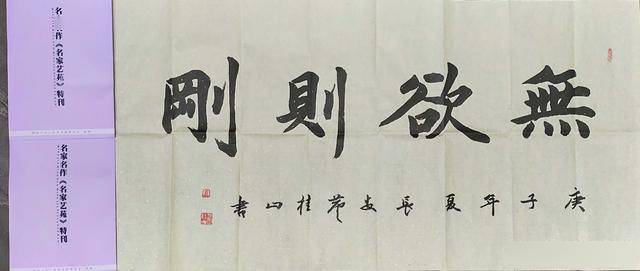 無欲則剛
庚子年夏長安桂山書
名 作《名家艺苑》特刊
名家名作《名家艺苑》特刊